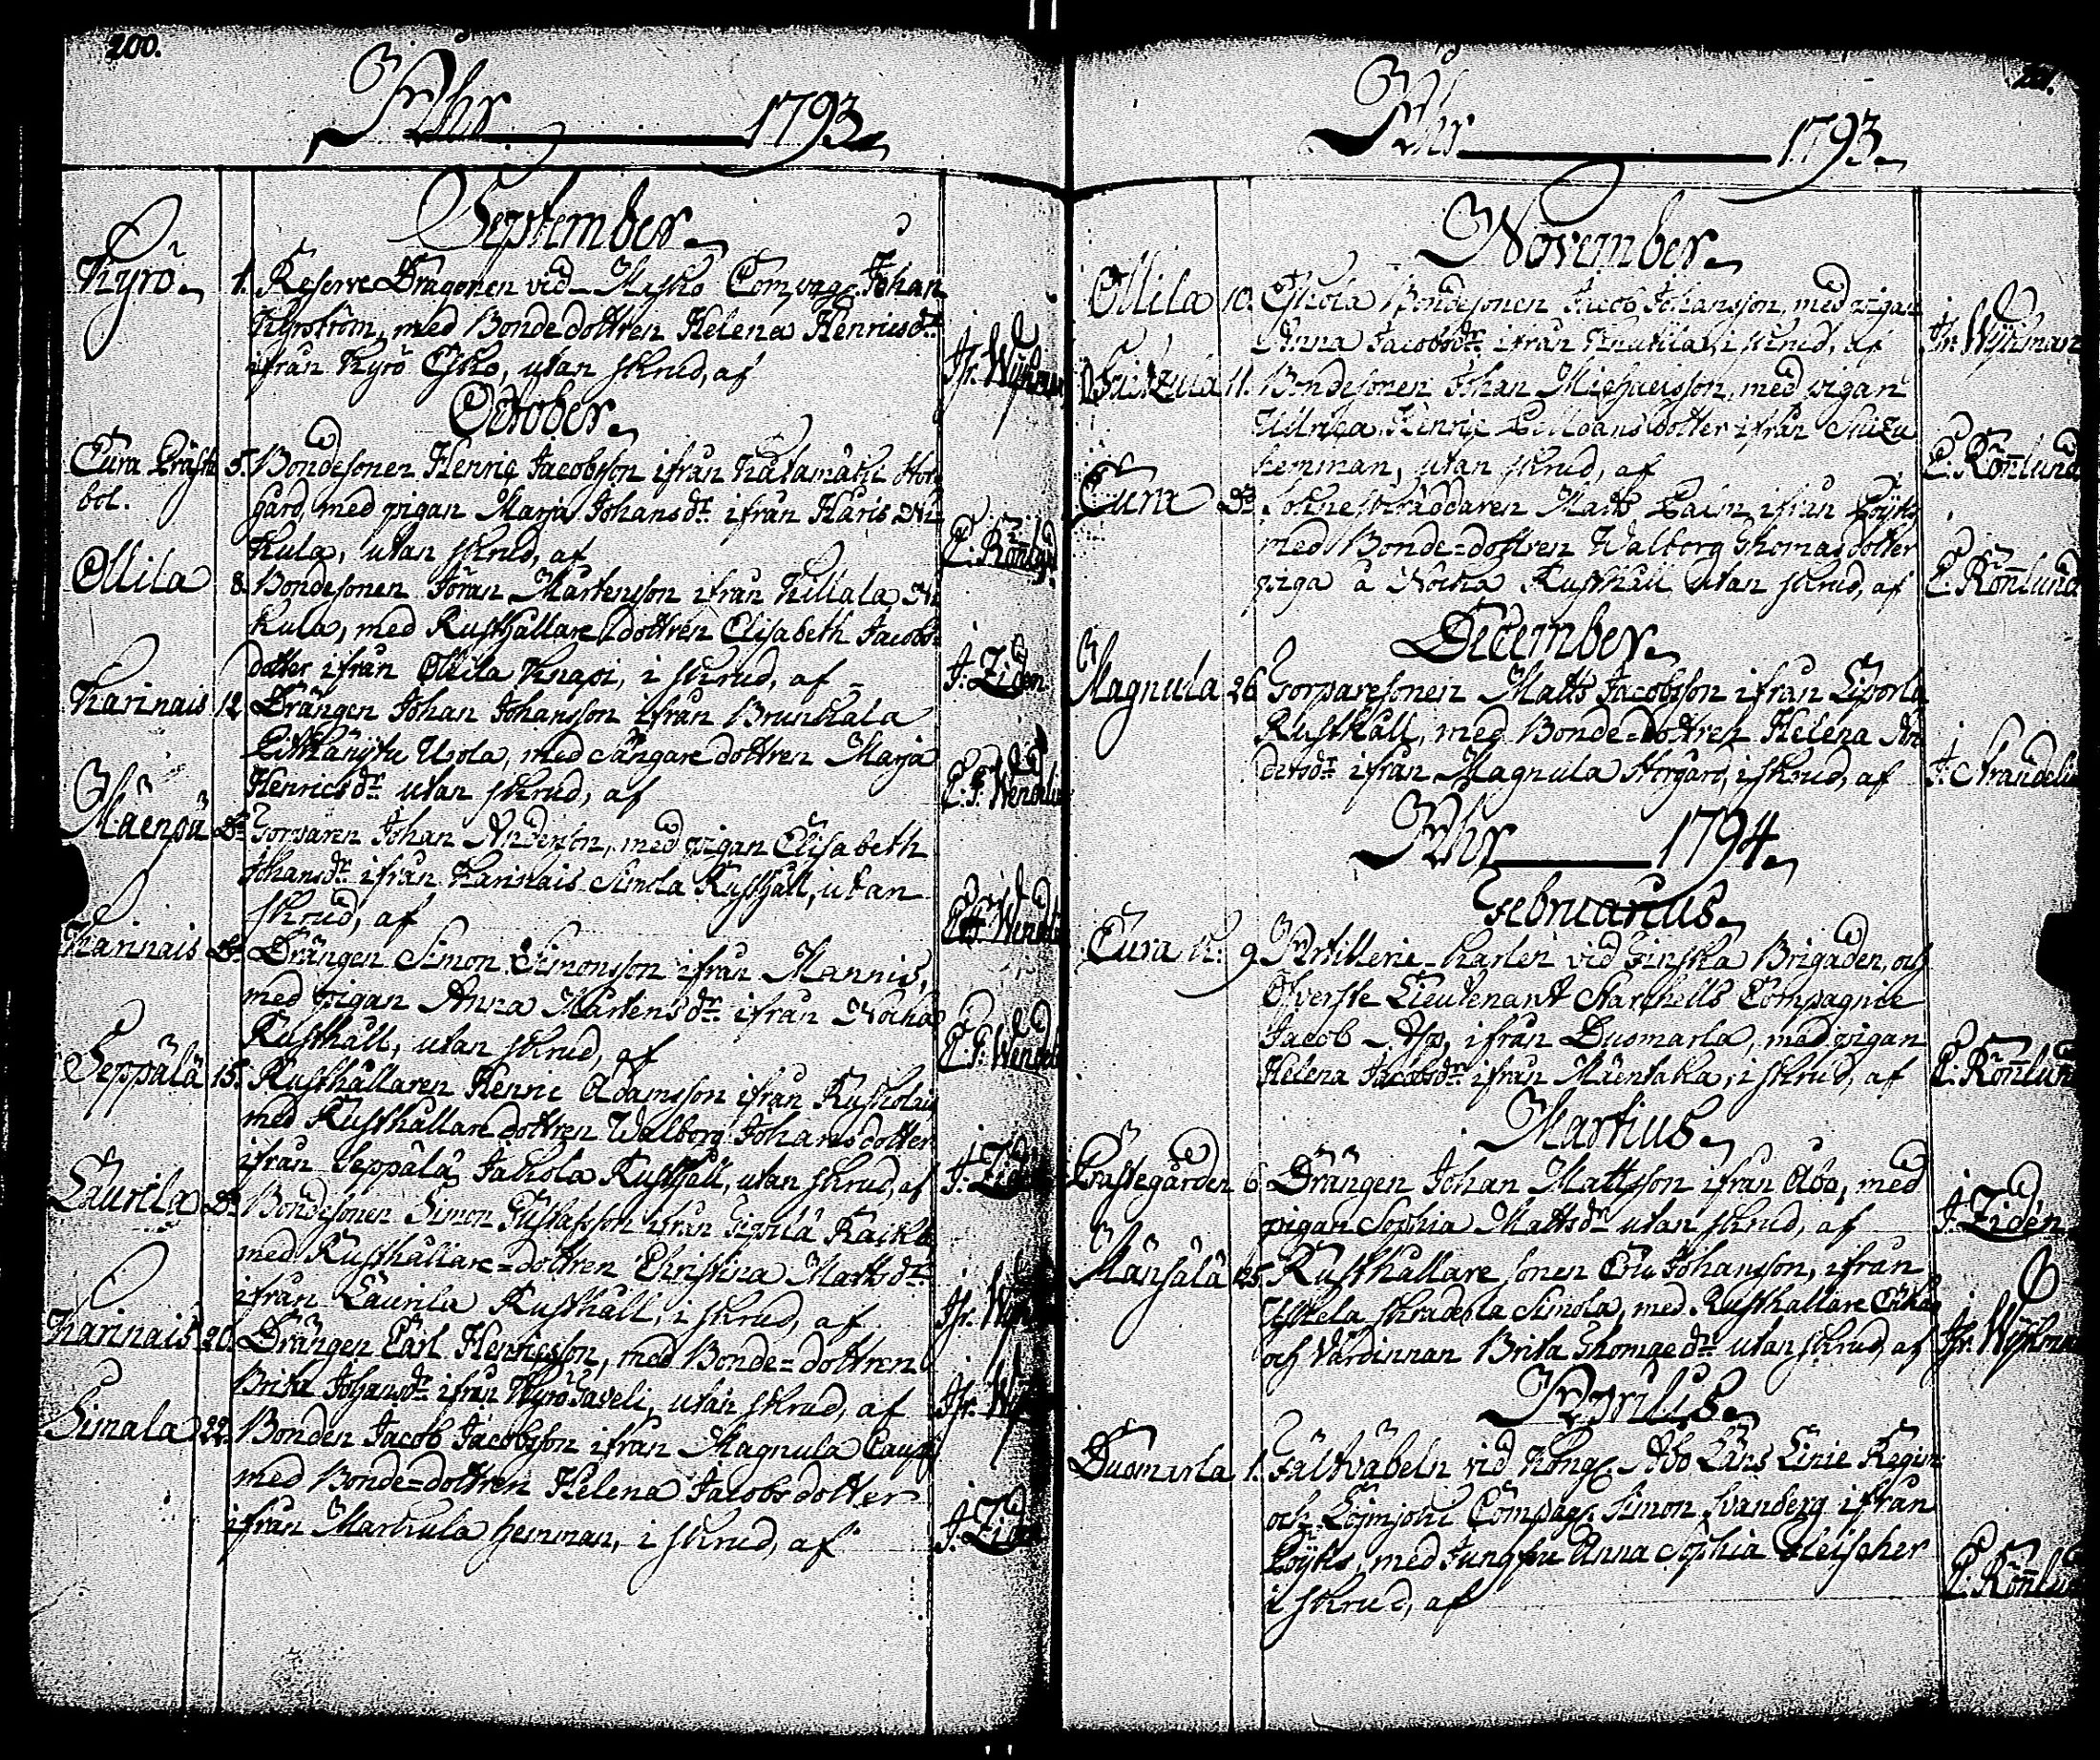 200.
Åhr 1793.
September.
Kyrö. 1. Reserve Dragonen vid Mesko Compag. Johan
Kyrström, med Bonde dottren Helena Henricsdr
ifrån Kyrö Esko, utan skrud, af Jsr. Wijkman
October.
Eura Prästebol. 5. Bondesonen Henric Jacobsson ifrån
gård, med pigan Maria Johansdr ifrån Karis
kula, utan skrud, af E. Rönlund
Ollila 8. Bondesonen Jöran Mårtensson ifrån Killala
kula, med Rusthållare dottren Elisabeth Jacobs-
dotter ifrån Ollila Knapi, i skrud, af J. Ziden
Karinais 12. Drängen Johan Johansson ifrån Brunkala
Uola, med Sångare dottren Marja
Henricsdr utan skrud, af
Mäenpä Do Torparen Johan Andersson, med pigan Elisabeth
Johansdr ifrån Karinais Simola Rusthåll, utan
skrud, af
Karinais Do Drängen Simon Simonsson ifrån Mannis,
med pigan Anna Mårtensdr ifrån Nocka
Rusthåll, utan skrud, af
Seppälä 15. Rusthållaren Henric Adamsson ifrån Ruskolais
med Rusthållare dottren Walborg Johansdotter
ifrån Seppälä Jakola Rusthåll, utan skrud, af J. Ziden
Laurila Do Bondesonen Simon Gustafsson ifrån
med Rusthållare=dottren Christina Mattsdr
ifrån Laurila Rusthåll, i skrud, af
Karinais 20. Drängen Carl Henricsson, med Bonde=dottren
Brita Johansdr ifrån Kyrö Paveli, utan skrud, af
Simala 22. Bonden Jacob Jacobsson ifrån Magnula Caupi
med Bonde=dottren Helena Jacobsdotter
ifrån Markula hemman, i skrud, af J. Ziden
201.
Åhr 1793.
November.
Ollila 10. Eskola Bondesonen Jacob Johansson, med pigan
Anna Jacobsdr ifrån Knutila, i skrud, af Jsr. Wijkman
11. Bondesonen Johan Michaelsson, med pigan
Ulrica Henric dotter ifrån
hemman, utan skrud, af E. Rönlund
Eura Do Sockneskräddaren Matts Palm ifrån Pöytis
med Bonde=dottren Walborg Thomasdotter
piga å Nocka Rusthåll utan skrud, af E. Rönlund
December.
Magnula 26. Torparesonen Matts Jacobsson ifrån Liporla
Rusthåll, med Bonde=dottren Helena An
dersdr ifrån Magnula Storgård, i skrud, af
Åhr 1794.
Februarius.
Eura K. 9. Artillerie-karlen vid Finska Brigaden, och
Öfverste Lieutenant Compagnie
Jacob Asp, ifrån Duomarla, med pigan
Helena Jacobsdr ifrån Mäentaka, i skrud, af E. Rönlund
Martius.
Prästegården 6. Drängen Johan Mattsson ifrån Åbo, med
pigan Sophia Mattsdr utan skrud, af J. Ziden
Mänsälä 25. Rusthållare sonen Eric Johansson, ifrån
Simola, med Rusthållare Enkan
och Värdinnan Brita Thomædr utan skrud, af Jsr. Wijkman
Aprilis.
Duomarla 1. Fältväbeln vid Kongl. Åbo Läns Linie Regim:
och Loimjoki Compag. Simon Svanberg ifrån
Pöytis, med Jungfru Anna Sophia Fleischer
i skrud, af E. Rönlund